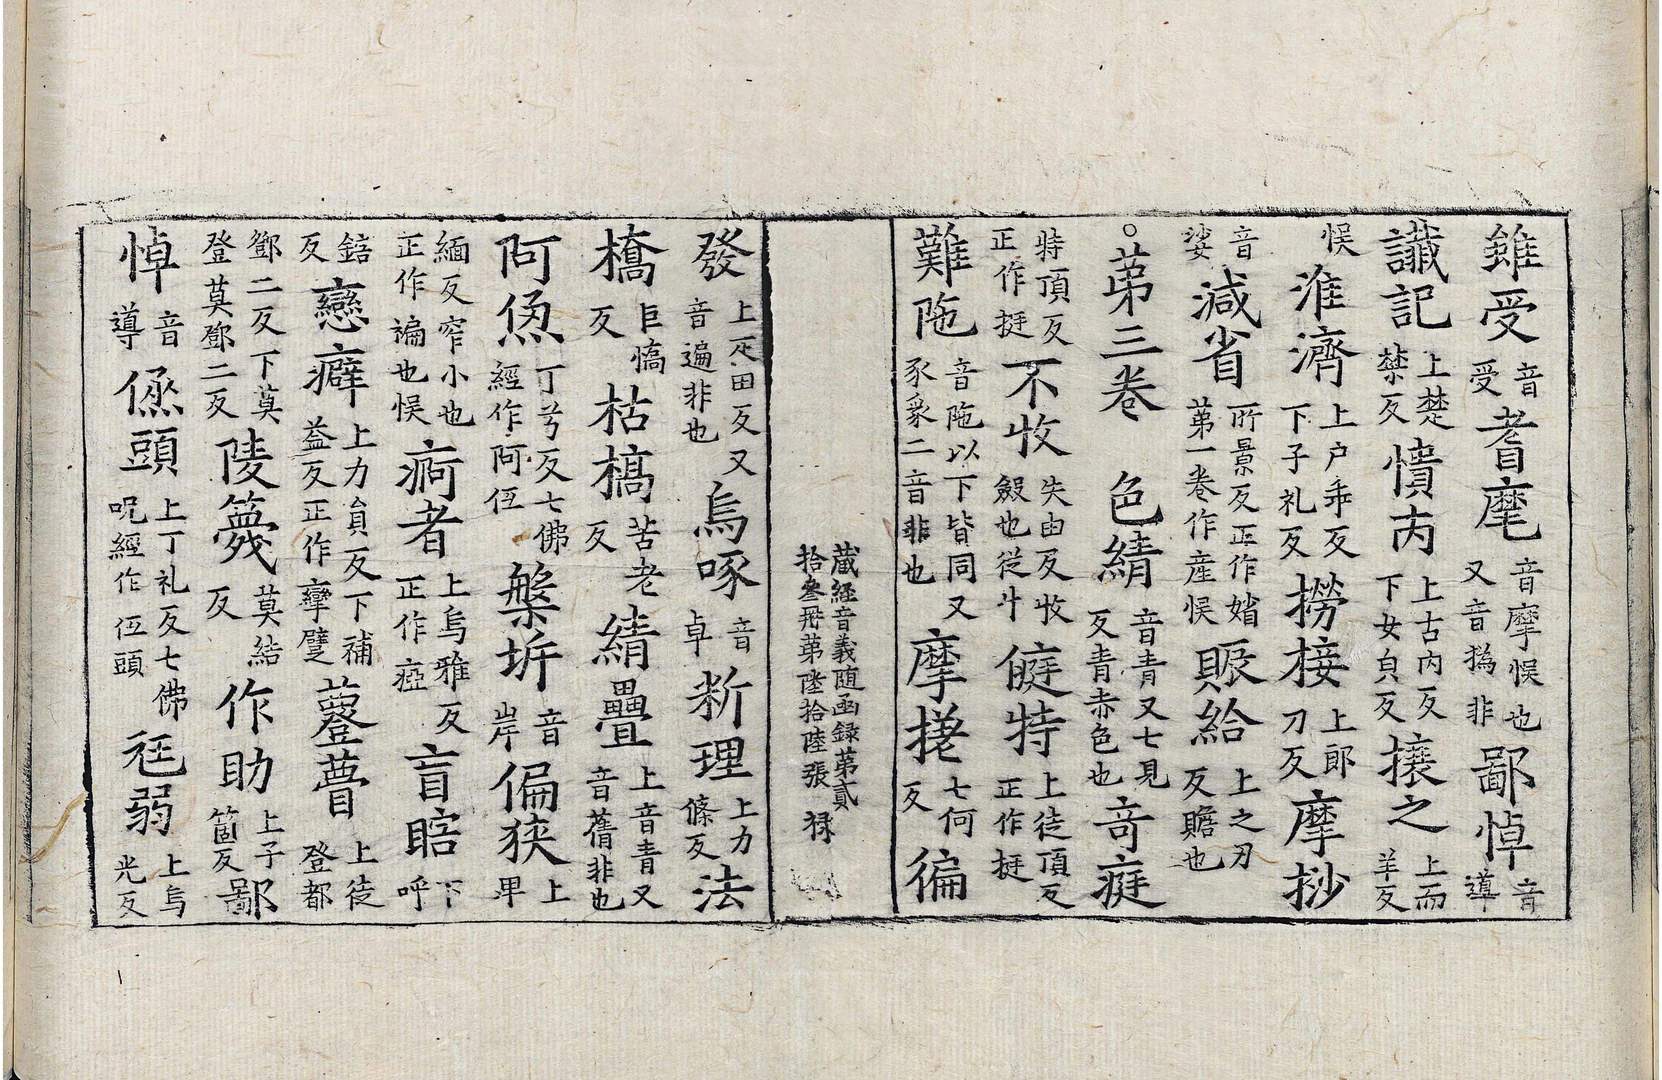 雖受音受耆麾音摩悮也又音撝非鄙悼音導
讖記上楚禁反憒丙上古內反下女皃反攘之上而羊反
悮淮濟上户乖反下子礼反撈接上郎刀反摩抄
音娑減省所景反正作㨘第一卷作産悮賑給上之刃反贍也
○苐三卷 色綪音青又七見反青赤色也竒
特頂反正作挺不收失由反收斂也從斗特上徒頂反正作挺
難陁音陁以下皆同又豕㐺二音非也摩搓七何反徧
藏經音義随函録苐貳
拾叁册苐陸拾陸張 禄
發上疋田反又音遍非也烏啄音卓理上力條反法
橋巨憍反枯槁苦老反綪疊上音青又音蒨非也
阿丁兮反七佛經作阿伍槃音岸偏狹上卑
緬反窄小也正作褊也悮痾者上烏雅反正作瘂盲瞎下呼
鎋反戀癖上力貟反下補益反正作攣躄瞢上徒登都
鄧二反下莫登莫鄧二反陵篾莫結反作助上子箇反鄙
悼音導頭上丁礼反七佛呪經作伍頭尪弱上烏光反